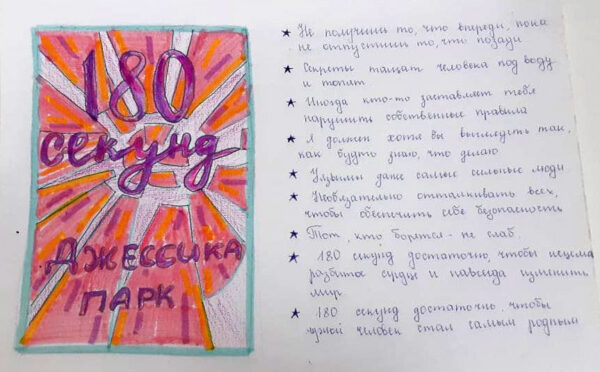 180
секунд
Джессика
Парк
★ Не получишь то, что впереди, пока
не отпустишь то, что позади
★ Секреты тащат человека под воду
и топят
★ Иногда кто-то заставляет тебя
нарушить собственные правила
★ Я должен хотя бы выглядеть так,
как будто знаю, что делаю
★ Уязвимы даже самые сильные люди
★ Необязательно отталкивать всех,
чтобы обеспечить себе безопасность
★ Тот, кто борется - не слаб.
★ 180 секунд достаточно, чтобы
разбитое сердце и навсегда изменить
мир
★ 180 секунд достаточно, чтобы
чужой человек стал самым родным